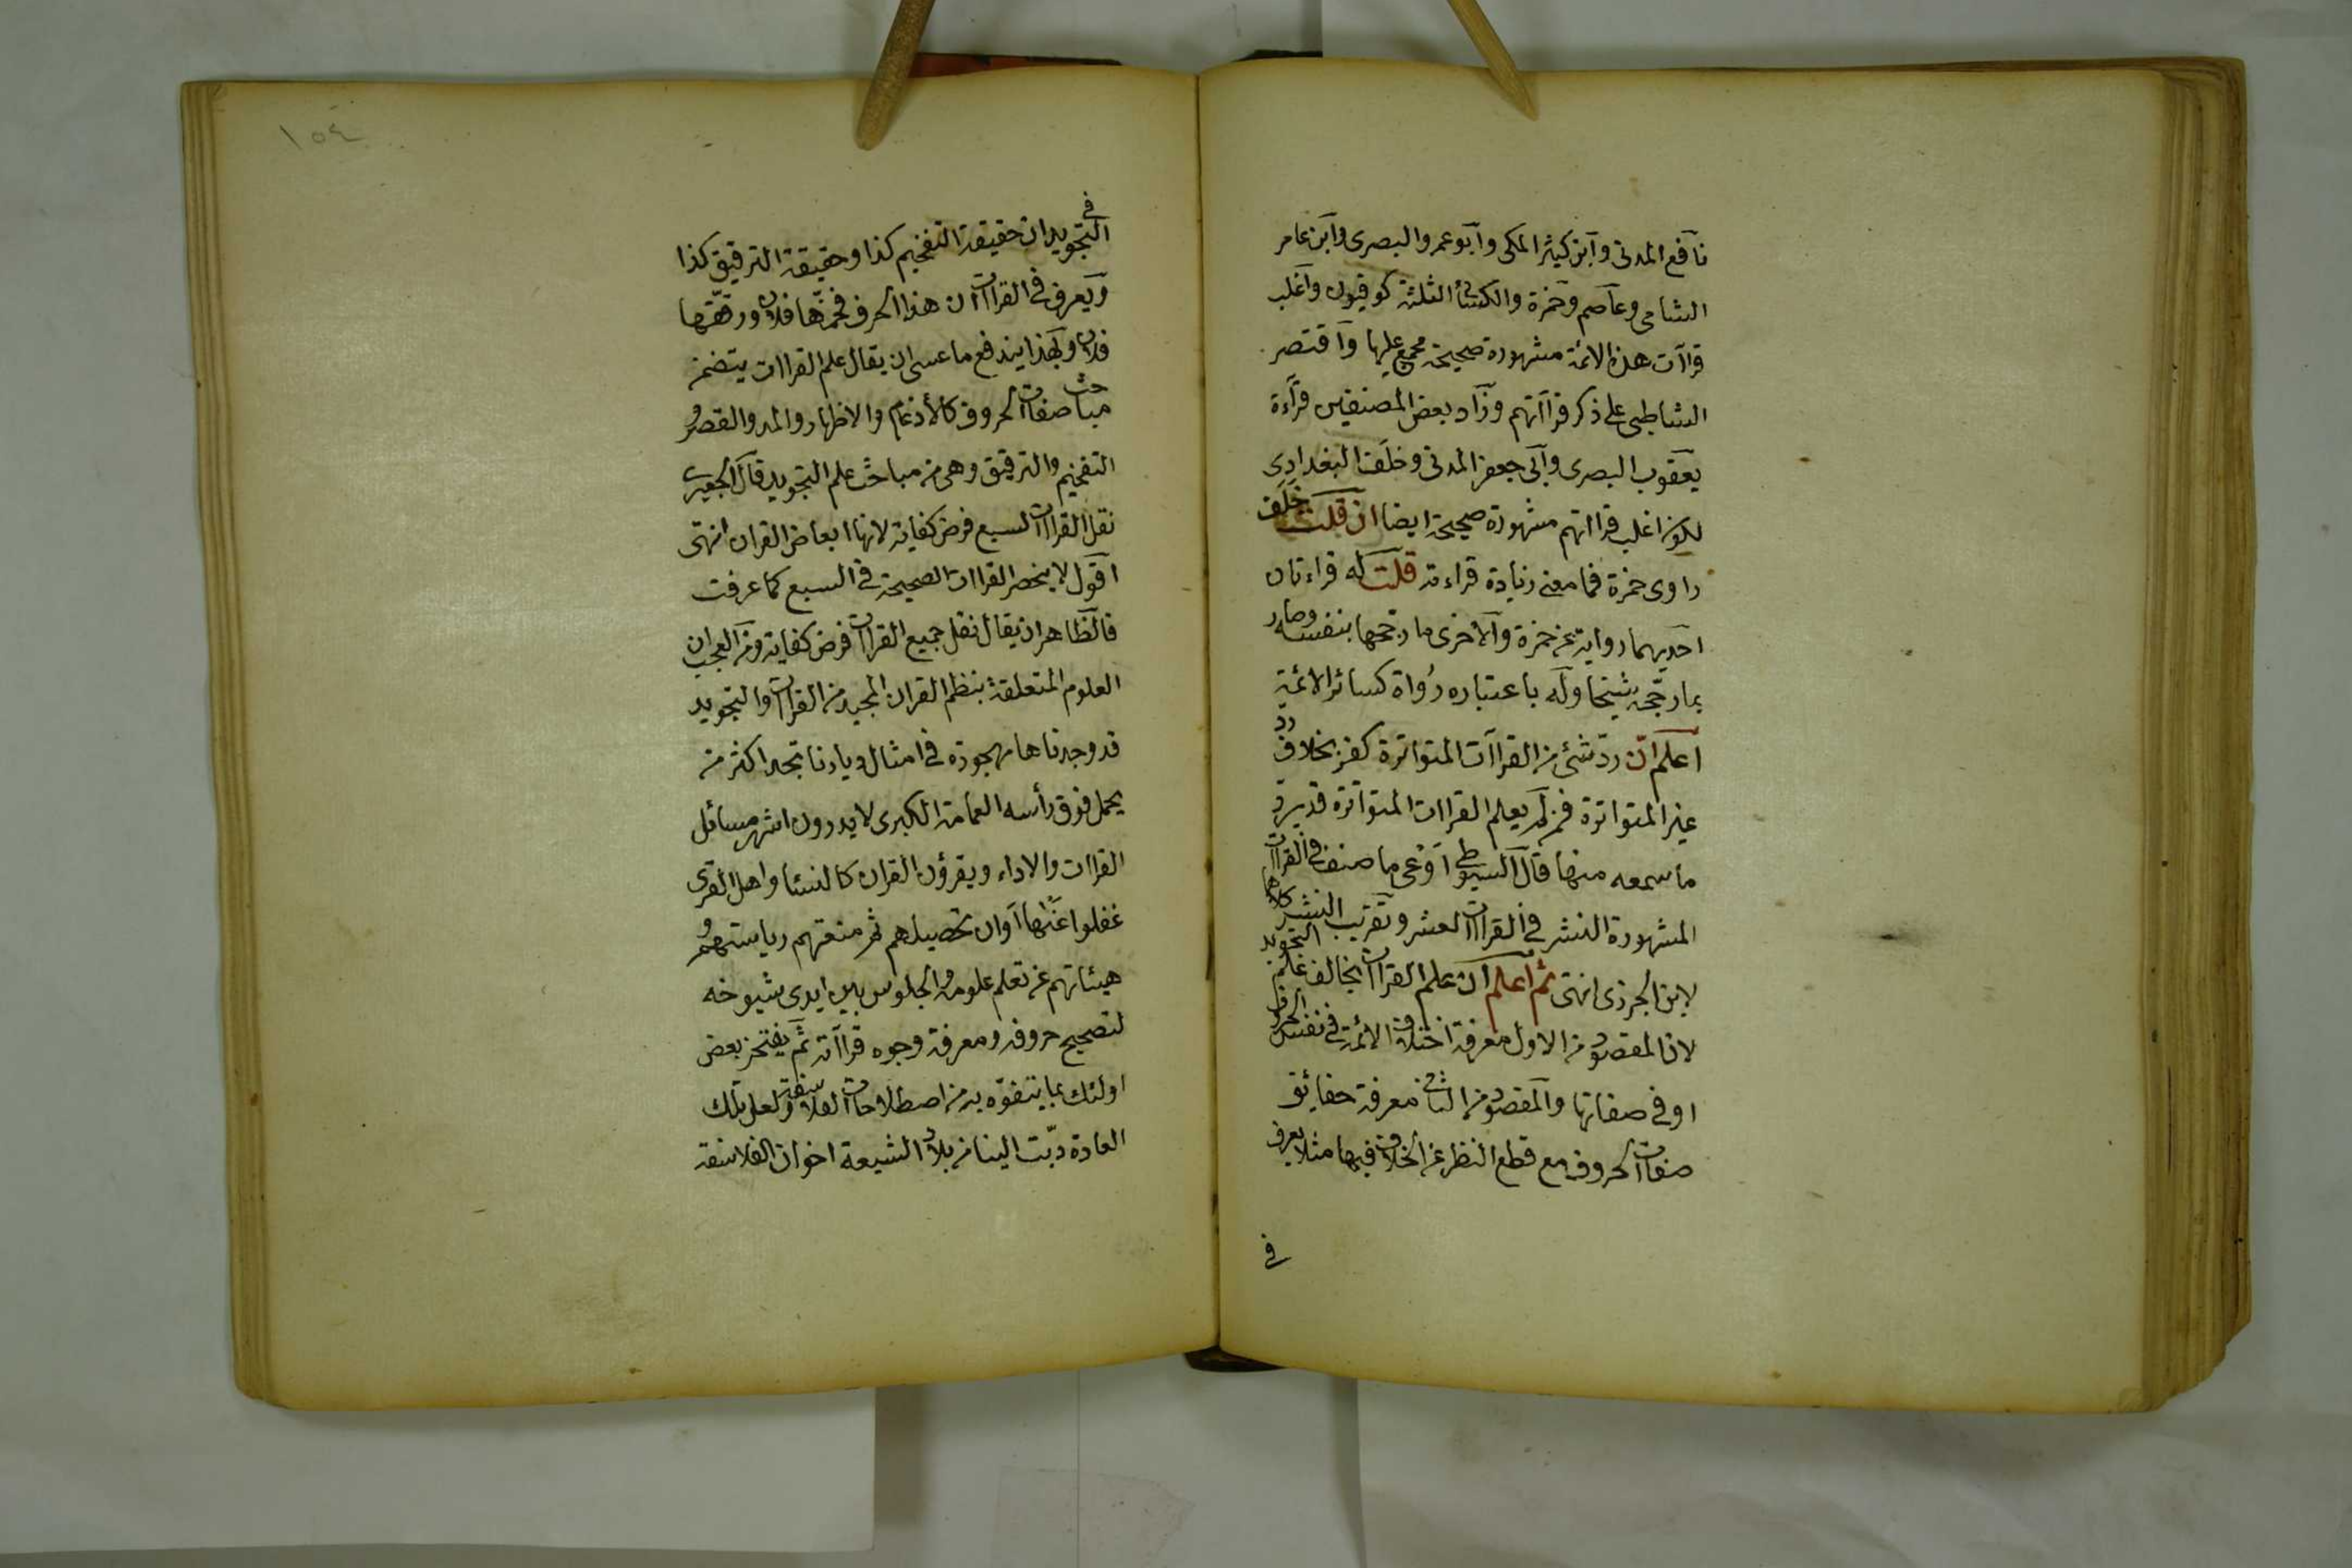 نافع المدنى وابن كثير المكى وابو عمرو البصرى وابن عامر
الشامى وعاصم وحمزة والكسائى الثلثة كوفيون واغلب
قراآت هذه الائمة مشهورة صحيحة مجمع عليها واقتصر
الشاطبى على ذكر قراآتهم وزاد بعض المصنفين قراءة
يعقوب البصرى وابى جعفر المدنى وخلف البغدادى
لكون اغلب قراآتهم مشهورة صحيحة ايضا ان قلت خلف
راوى حمزة فما معنى زيادة قراءته قلت له قراءتان
احديهما رواية عن حمزة والاخرى ما رجحها بنفسه وصار
بما رجحه شيخا وله باعتباره رُواة كسائر الائمة
اعلم ان ردّ شئ من القراآت المتواترة كفر بخلاف ردّ
غير المتواترة فمن لم يعلم القراات المتواترة قد يردّ
ما سمعه منها قال السيوطى اوعى ما صنف فى القراآت
المشهورة النشر فى القراآت العشر وتقريب النشر كلاهما
لابن الجزرى انتهى ثم اعلم ان علم القراآت يخالف علم التجويد
لان المقصود من الاول معرفة اختلاف الائمة فى نفس الحرف
او فى صفاتها والمقصود من الثانى معرفة حقائق
صفات الحروف مع قطع النظر عن الخلاف فيها مثلا يعرف
فى
١٥٤
فى التجويد ان حقيقة التفخيم كذا وحقيقة الترقيق كذا
ويعرف فى القراآت ان هذا الحرف فخمّها فلان ورققّها
فلان وبهذا يندفع ما عسى ان يقال علم القراات يتضمن
مباحث صفات الحروف كالأدغام والاظهار والمد والقصر و
التفخيم والترقيق وهى من مباحث علم التجويد قال الجعبرى
نقل القراآت السبع فرض كفاية لانها ابعاض القران انتهى
اقول لا ينحصر القراات الصحيحة فى السبع كما عرفت
فالظاهر ان يقال نقل جميع القراآت فرض كفاية ومن العجب ان
العلوم المتعلقة بنظم القران المجيد من القراآت والتجويد
قد وجدناها مهجورة فى امثال ديارنا تجد اكثر من
يحمل فوق رأسه العمامة الكبرى لا يدرون اشهر مسائل
القراات والاداء ويقرؤن القران كالنساء واهل القرى
غفلوا عنها اوان تحصيلهم ثم منعتهم رياستهم و
هيئاتهم عن تعلم علومه والجلوس بين ايدى شيوخه
لتصحيح حروفه ومعرفة وجوه قراآته ثم يفتخر بعض
اولئك بما يتفوّه به من اصطلاحات الفلاسفة ولعل تلك
العادة دبّت الينا من بلاد الشيعة اخوان الفلاسفة